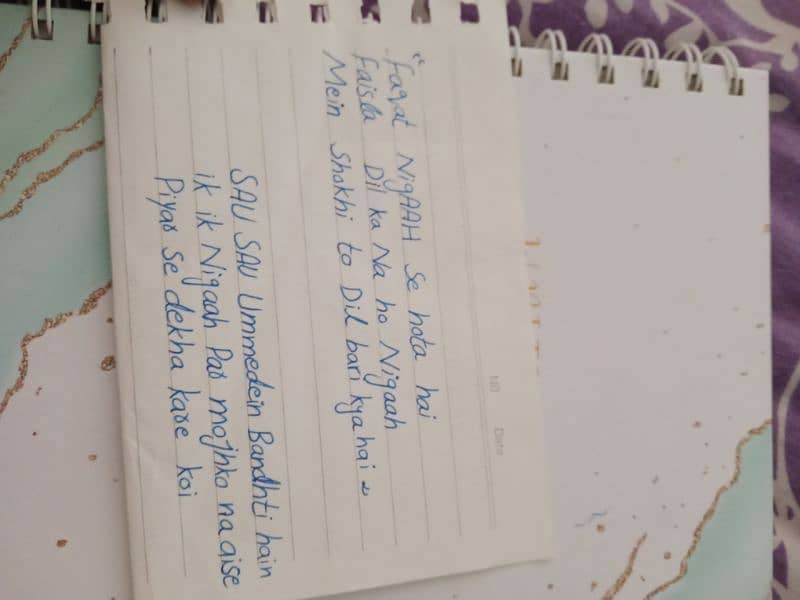 No Date
"faqat NigAAH Se hota hai
Faisla Dil ka Na ho Nigaah
Mein Shokhi to Dil bari kya hai
SAU SAU Ummedein Bandhti hain
ik ik Nigaah Par mojhko na aise
Piyar Se dekha kare koi